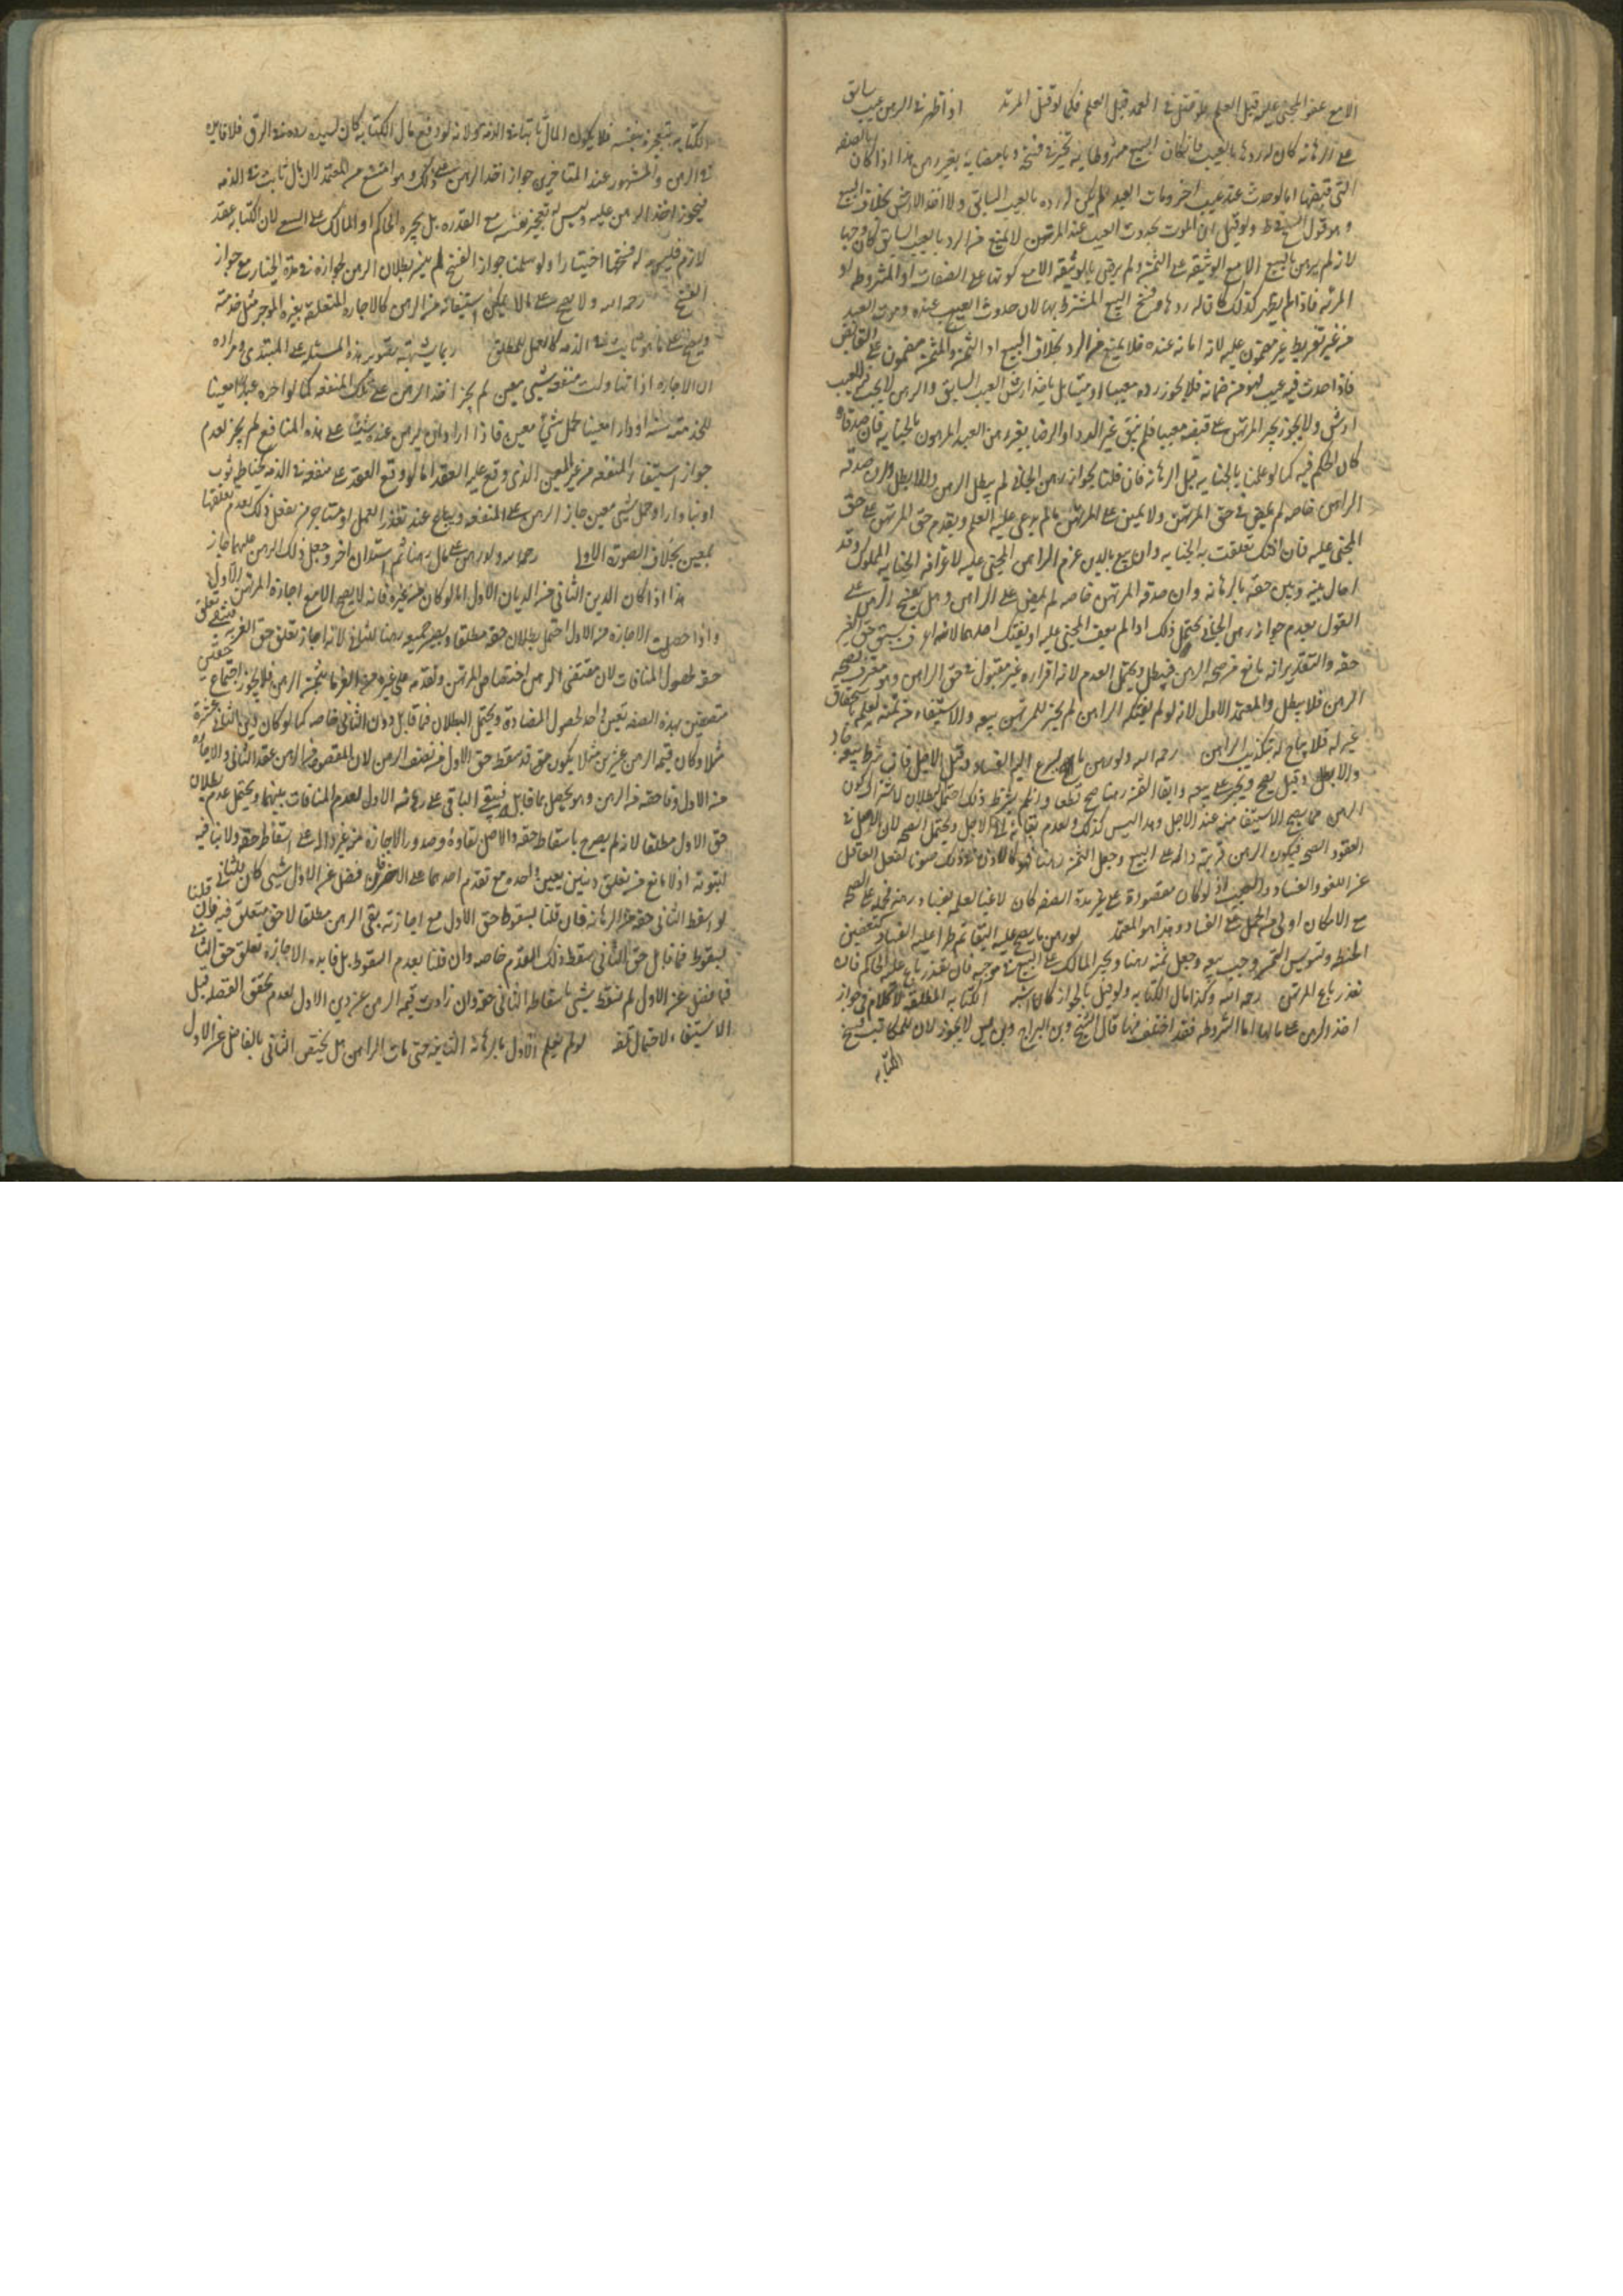 الا مع عفو المجني عليه قبل العلم فلو قتل في العمد قبل العلم فكما لو قتل المرتد اذا ظهر في الرهن عيب سابق
على الرهانة كان له رده بالعيب فان كان البيع مشروطا به تخير في فسخه وبامضائه بغير رهن هذا اذا كان بالصفة
التي قبضها اما لو حدث عنده عيب اخر ومات العبد لم يكن له رده بالعيب السابق ولا اخذ الارش بخلاف البيع
وهو قول الشيخ ولو قيل ان الموت بحدوث العيب عند المرتهن لا يمنع من الرد بالعيب السابق كان وجها
لانه لم يرض بالبيع الا مع الوثيقة على الثمن ولم يرض بالوثيقة الا مع كونها على الصفات المشروطة او
المرئية فاذا لم يظهر كذلك كان له ردها وفسخ البيع المشترط بها لان حدوث العيب عنده وموت العبد
من غير تفريط غير مضمون عليه لانه امانة عنده فلا يمنع من الرد بخلاف البيع اذ الثمن والمثمن مضمون على القابض
فاذا حدث فيه عيب فهو من ضمانه فلا يجوز رده معيبا بل ياخذ ارش العيب السابق والرهن لا يجب فيه للعيب
ارش ولا يجوز جبر المرتهن على قبضه معيبا فلم يبق غير الرد او الرضا بغيره من العبد المرهون بالجناية فان صدقاه
كان الحكم فيه كما لو علمنا بالجناية قبل الرهانة فان قلنا بجواز رهن الجاني لم يبطل الرهن والا بطل وان صدقه
الراهن خاصه لم يمض في حق المرتهن ولا يمين على المرتهن ما لم يدعى عليه العلم ويقدم حق المرتهن على حق
المجني عليه فان افتك تعلقت به الجناية وان بيع بالدين غرم الراهن المجني عليه لاعترافه بجناية المملوك وقد
احال بينه وبين حقه بالرهانة وان صدقه المرتهن خاصه لم يمض على الراهن وهل يصح الرهن على
القول بعدم جواز رهن الجاني يحتمل ذلك اذا لم يعف المجني عليه او يفتك
حقه والتقدير انه مانع من صحة الرهن فيبطل ويحتمل العدم لانه اقراره غير مقبول في حق الراهن وهو معترف بصحة
الرهن فلا يبطل والمعتمد الاول لانه لو لم يفتكه الراهن لم يجز للمرتهن بيعه والاستيفاء من ثمنه لعلمه باستحقاق
غيره له فلا يباح له بتكذيب الراهن رحمه الله ولو رهن ما يسرع اليه الفساد قبل الاجل فان شرط بيعه جاز
والا بطل وقيل يصح ويجبر على بيعه وابقا الثمن رهنا صح قطعا وان لم يشرط ذلك احتمل البطلان لاشتراط كون
الرهن مما يصح الاستيفا منه عند الاجل وهذا ليس كذلك ولعدم بقائه الى الاجل ويحتمل الصحه لان الاصل في
العقود الصحه فيكون الرهن قرينة داله على البيع وجعل الثمن رهنا فهو كالاذن في ذلك صونا لفعل العاقل
عن اللغو والفساد
مع الامكان اولى من الحمل على الفساد وهذا هو المعتمد لو رهن ما يصح عليه البقا ثم طرا عليه الفساد كتعفين
الحنطه وتسويس التمر وجب بيعه وجعل ثمنه رهنا ويجبر المالك على البيع فان تعذر باع عليه الحاكم فان
تعذر باع المرتهن رحمه الله وكذا مال الكتابه ولو قيل بالجواز كان اشبه الكتابه المطلقه لا كلام في جواز
اخذ الرهن على مالها اما المشروطه فقد اختلف فيها قال الشيخ وابن البراج وابن ادريس لا يجوز لان للمكاتب فسخ
الكتابه
الكتابه بتعجيز نفسه فلا يكون المال ثابتا في الذمه ولانه لو دفع مال الكتابه كان لسيده رده في الرق فلا فايده
في الرهن والمشهور عند المتاخرين جواز اخذ الرهن على ذلك وهو المعتمد لانه مال ثابت في الذمه
فيجوز اخذ الرهن عليه وليس له تعجيز نفسه مع القدره بل يجبره الحاكم او المالك على السعي لان الكتابه عقد
لازم فليس له فسخها اختيارا ولو سلمنا جواز الفسخ لم يلزم بطلان الرهن لجوازه في مدة الخيار مع جواز
الفسخ رحمه الله ولا يصح على ما لا يمكن استيفائه من الرهن كالاجاره المتعلقه بعين الموجر مثل خدمته
ويصح على ما هو ثابت في الذمه كالعمل المطلق ربما يشتبه تقرير هذه المسئله على المبتدى ومراده
ان الاجاره اذا تناولت منفعة شيء معين لم يجز اخذ الرهن على تلك المنفعه كما لو اجره عبدا معينا
للخدمة سنة او دارا معينا لحمل شيء معين فاذا اراد ان يرهن عنده شيئا على هذه المنافع لم يجز لعدم
جواز استيفاء المنفعه من غير المعين الذي وقع عليه العقد اما لو وقع العقد على منفعه في الذمه كخياطه ثوب
او بنا دار او حمل شيء معين جاز الرهن على المنفعه ويباع عند تعذر العمل لعدم تعلقها
بمعين بخلاف الصورة الاولى رحمه الله ولو رهن على مال رهنا ثم استدان اخر وجعل ذلك الرهن عليهما جاز
هذا اذا كان الدين الثاني من الديان الاول اما لو كان من غيره فانه لا يصح الا مع اجازة المرتهن الاول
واذا حصلت الاجازه من الاول احتمل بطلان حقه مطلقا ويصير جميعه رهنا للثاني لانه اجاز تعلق حق الغير
حقه لحصول المنافات لان مقتضى الرهن اختصاص المرتهن وتقدمه على غيره من الغرما بثمن الرهن فلا يجوز اجتماع حقين
متصفين بهذه الصفه بعين واحد لحصول المضادة ويحتمل البطلان فيما قابل دين الثاني خاصه كما لو كان دين الثاني عشرة
مثلا وكان قيمة الرهن عشرين مثلا يكون حق قد سقط حق الاول من نصف الرهن لان المقصود
من الاول وفا حقه من الرهن وهو يحصل بما قابله فيبقى الباقي على رهانته الاول لعدم المنافات بينهما ويحتمل عدم بطلان
حق الاول مطلقا لانه لم يصرح باسقاط حقه والاصل بقاؤه وصدور الاجازه من غير داله على اسقاط حقه ولا منافيه
لثبوته اذ لا مانع من تعلق دينين بعين واحده مع تقدم احدهما على الاخر فان فضل عن الاول شيء كان للثاني
لو اسقط الثاني حقه من الرهانه فان قلنا بسقوط حق الاول مع اجازته بقي الرهن مطلقا لا حق متعلق فيه وان قلنا
بسقوط ما قابل حق الثاني سقط ذلك القدر خاصه وان قلنا بعدم السقوط بل فايده الاجازه تعلق حق الثاني
فيما فضل عن الاول لم يسقط شيء باسقاط الثاني حقه وان زادت قيمة الرهن عن دين الاول لعدم تحقق الفضله قبل
الاستيفاء لاحتمال تلفه لو لم يعلم الاول بالرهانه الثانيه حتى مات الراهن هل يختص الثاني بالفاضل عن الاول